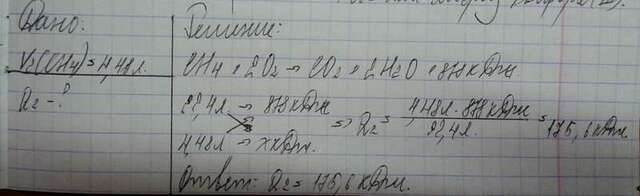 Дано:
V₂(CH4) = 4,48л.
Q₂ - ?
Решение:
CH4 + 2O₂ → CO₂ + 2H₂O + 878 кДж
22,4л → 878 кДж
4,48л → x кДж.
⇒ Q₂ = 4,48л · 878 кДж / 22,4л. = 175,6 кДж.
Ответ: Q₂ = 175,6 кДж.